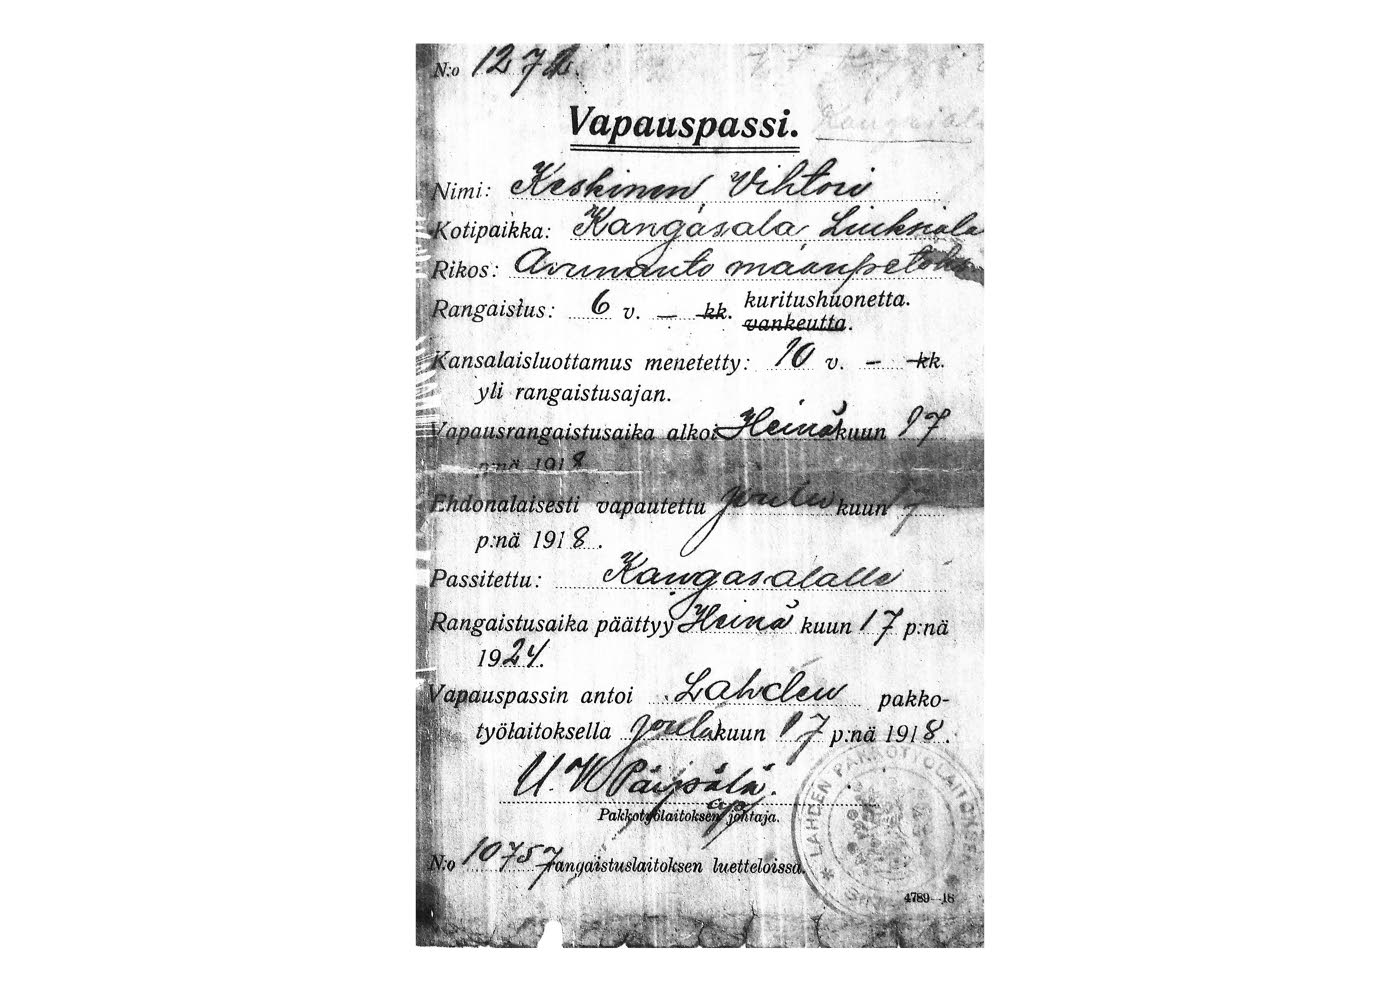 N:o 1272.
Kangasala
Vapauspassi.
Nimi: Keskinen, Vihtori
Kotipaikka: Kangasala Liuksiala
Rikos: Avunanto maanpetoks
Rangaistus: 6 v. — kk. kuritushuonetta.
vankeutta.
Kansalaisluottamus menetetty: 10 v. — kk.
yli rangaistusajan.
Vapausrangaistusaika alkoi Heinäkuun 17
p:nä 1918
Ehdonalaisesti vapautettu joulukuun 17
p:nä 1918.
Passitettu: Kangasalalle
Rangaistusaika päättyy Heinä kuun 17 p:nä
1924.
Vapauspassin antoi Lahden pakko-
työlaitoksella joulukuun 17 p:nä 1918.
U. V. Päipälä.
Pakkotyölaitoksen johtaja.
N:o 10757 rangaistuslaitoksen luetteloissa.
* LAHDEN PAKKOTYÖLAITOKSEN
4789—18